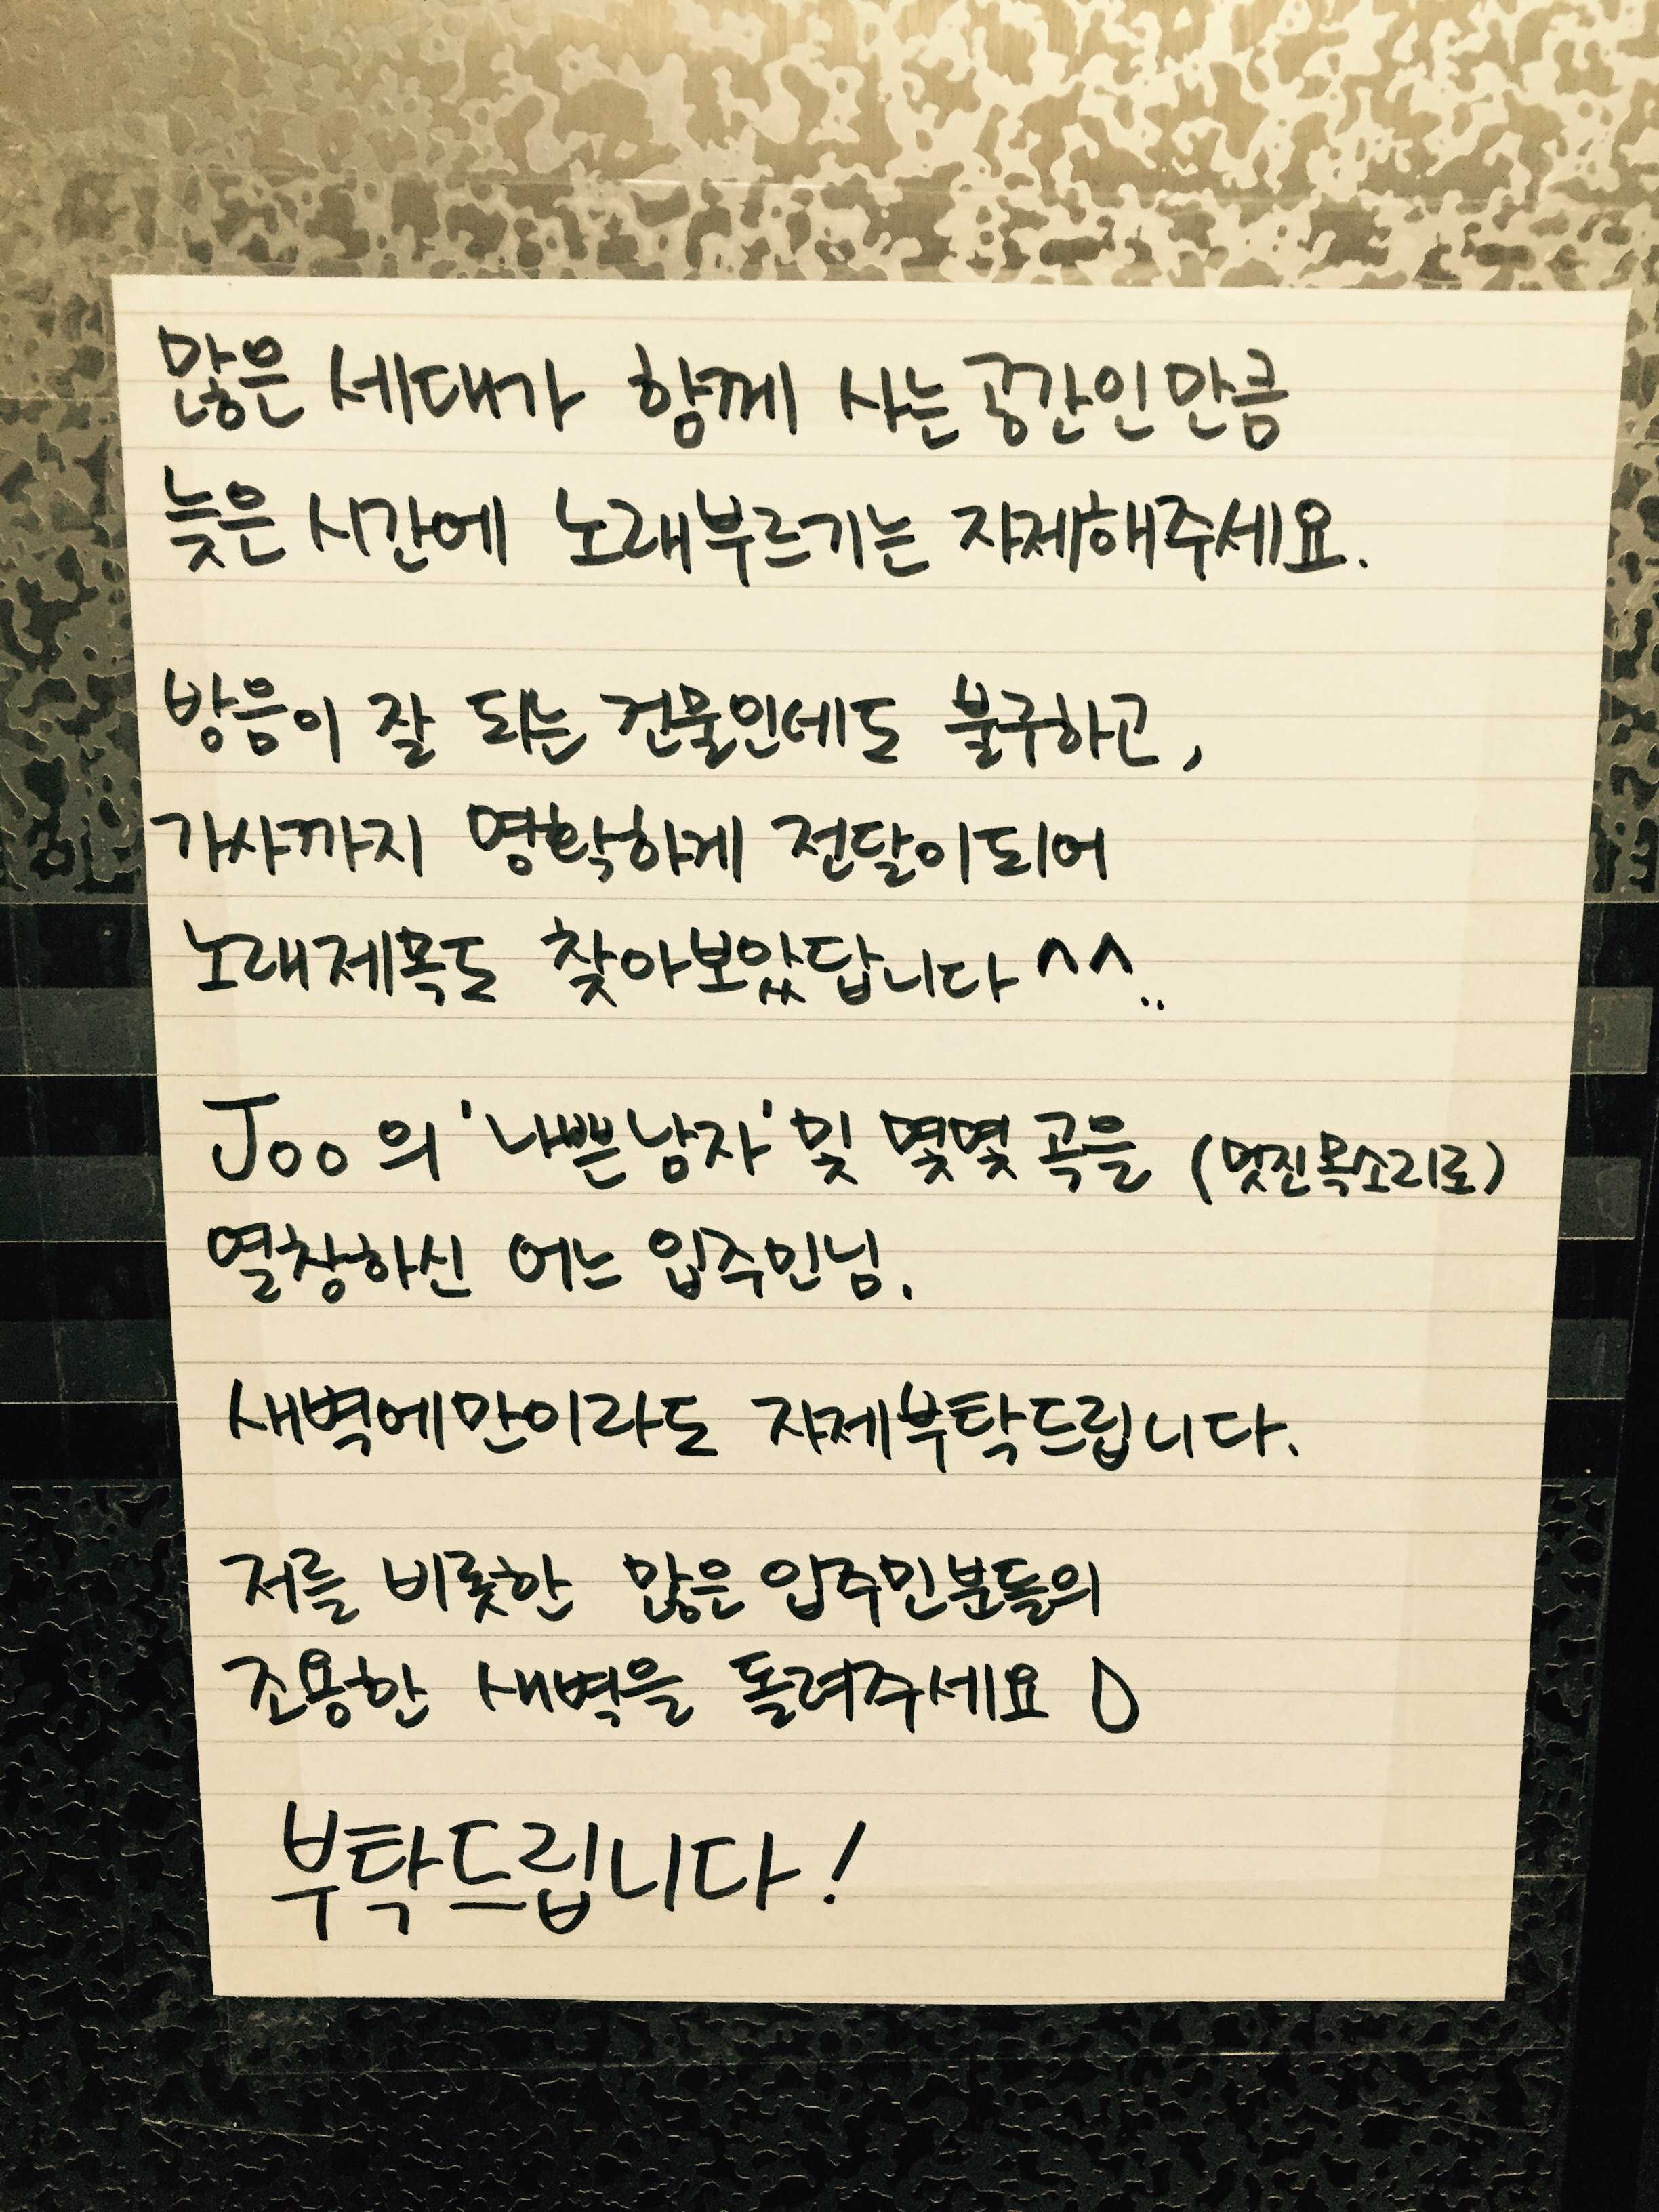 많은 세대가 함께 사는 공간인만큼
늦은 시간에 노래부르기는 자제해주세요.
방음이 잘 되는 건물인데도 불구하고,
가사까지 명확하게 전달이되어
노래제목도 찾아보았답니다 ^^..
Joo의 '나쁜남자' 및 몇몇 곡을 (멋진목소리로)
열창하신 어느 입주민님.
새벽에만이라도 자제부탁드립니다.
저를 비롯한 많은 입주민분들의
조용한 새벽을 돌려주세요
부탁드립니다!